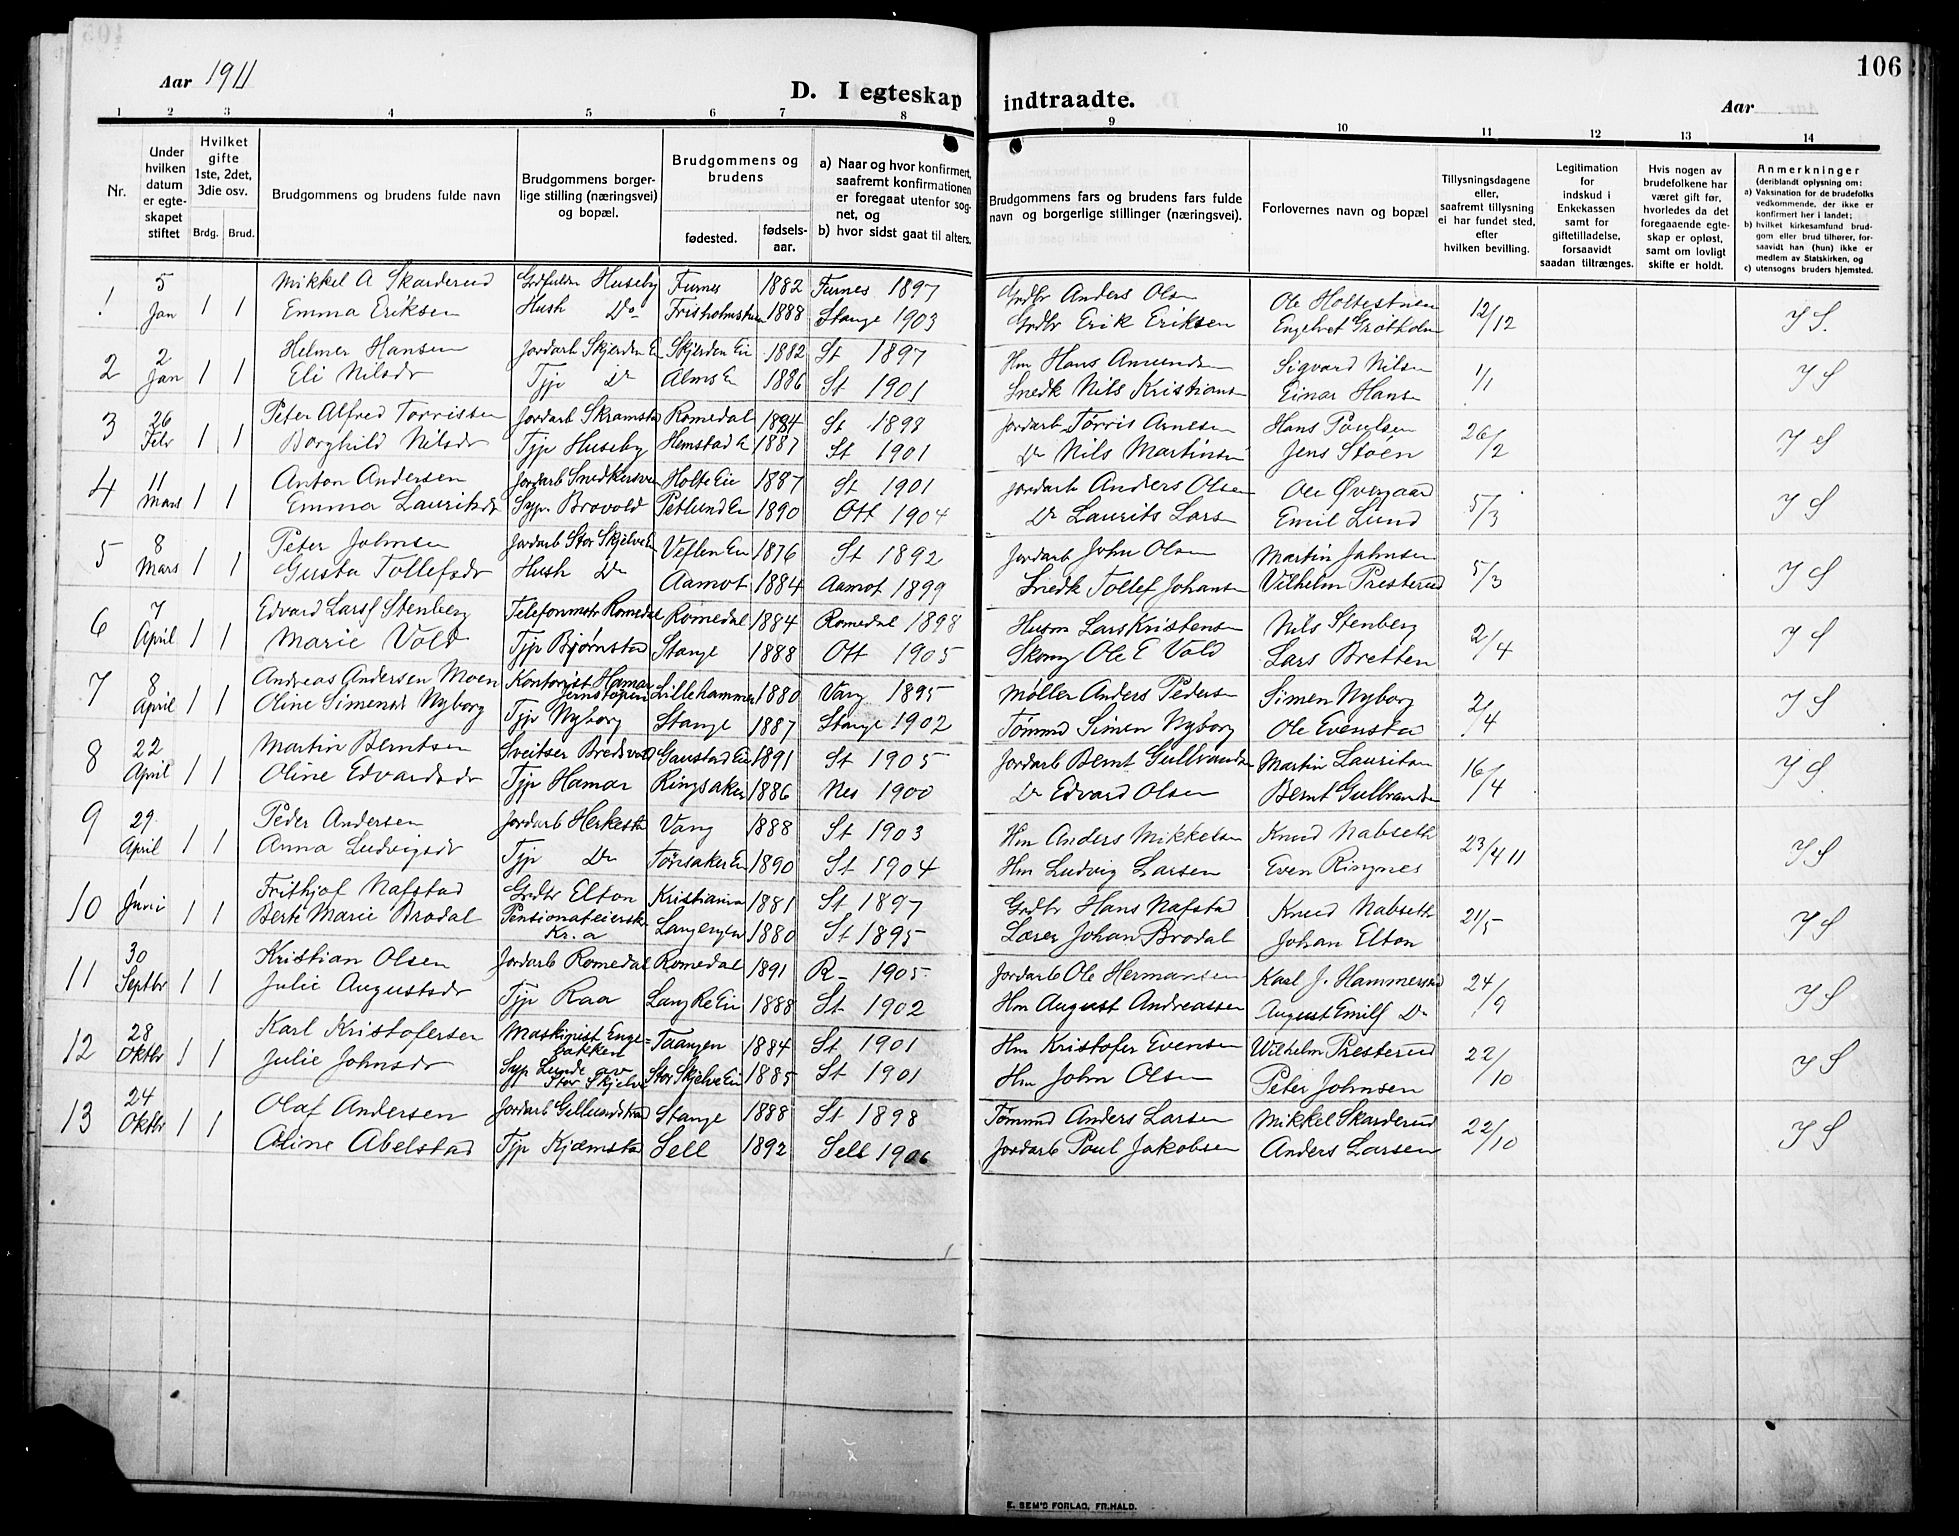 106
Aar 1911
D. I egteskap indtraadte.
Aar
1 2 3 4 5 6 7 8 9 10 11 12 13 14
Nr.
Under hvilken datum er egteskapet stiftet
Hvilket gifte 1ste, 2det, 3die osv.
Brdg. Brud.
Brudgommens og brudens fulde navn
Brudgommens borgerlige stilling (næringsvei) og bopæl.
Brudgommens og brudens
fødested. fødselsaar.
a) Naar og hvor konfirmert, saafremt konfirmationen er foregaat utenfor sognet, og
b) hvor sidst gaat til alters.
Brudgommens fars og brudens fars fulde navn og borgerlige stillinger (næringsvei).
Forlovernes navn og bopæl
Tillysningsdagene eller, saafremt tillysning ei har fundet sted, efter hvilken bevilling.
Legitimation for indskud i Enkekassen samt for giftetilladelse, forsaavidt saadan tiltrænges.
Hvis nogen av brudefolkene har været gift før, hvorledes da det foregaaende egteskap er opløst, samt om lovligt skifte er holdt.
Anmerkninger
(deriblandt oplysning om:
a) Vaksination for de brudefolks vedkommende, der ikke er konfirmert her i landet;
b) hvilket kirkesamfund brudgom eller brud tilhører, forsaavidt han (hun) ikke er medlem av Statskirken, og
c) utensogns bruders hjemsted.
1 5 Jan 1 1 Mikkel A Skarderud Huseby Furnes 1882 Furnes 1897 Grdbr Anders Olsen Ole 12/12 J S.
Emma Eriksen Hush Do 1888 Stange 1903 Grdbr Erik Eriksen
2 2 Jan 1 1 Helmer Hansen Jordarb Skjerden Ei Skjerden Ei 1882 St 1897 Hm Hans Amundsen Sigvard Nilsen 1/1 J S
Eli Nilsdr Tjp Do Alms Ei 1886 St 1901 Snedk Nils Kristians Einar Hansn
3 26 Febr 1 1 Peter Alfred Torrissen Jordarb Skramstad Romedal 1884 St 1898 Jordarb Torris Arnesen Hans Poulsen 26/2 J S
Borghild Nilsdr Tjp Huseby Hemstad Ei 1887 St 1901 Do Nils Martinsen Jens Støen
4 11 Mars 1 1 Anton Andersen Jordarb Snedkersven Holte Ei 1887 St 1901 Jordarb Anders Olsen Ole Øvergaard 5/3 J S
Emma Lauritsdr Syp. Brovold Petlund Ei 1890 Ott 1904 Do Laurits Lars Emil Lund
5 8 Mars 1 1 Peter Johnsen Jordarb Stor Skjelve Ei Veflen Ei 1876 St 1892 Jordarb John Olsen Martin Johnsen 5/3 J S
Gusta Tollefsdr Hush Do Aamot 1884 Aamot 1899 Snedk Tollef Johansen Vilhelm Presterud
6 7 April 1 1 Edvard Larss Stenberg Telefonmstr Romedal Romedal 1884 Romedal 1898 Husm Lars Kristensen Nils Stenberg 2/4 J S
Marie Vold Tjp Bjørnstad Stange 1888 Ott 1905 Skom Ole E Vold Lars Bretten
7 8 April 1 1 Andreas Andersen Moen Kontorist Hamar Jernstøperi Lillehammer 1880 Vang 1895 Møller Anders Pedersn Simen Nyborg 2/4 J S
Oline Simensdr Nyborg Tjp Nyborg Stange 1887 Stange 1902 Tømmd Simen Nyborg Ole Evenstad
8 22 April 1 1 Martin Berntsen Sveitser Bredsvold Gaustad Ei 1891 St 1905 Jordarb Bernt Gulbrandsn Martin Lauritsen 16/4 J S
Oline Edvardsdr Tjp Hamar Ringsaker 1886 Nes 1900 Do Edvard Olsen Bernt Gulbrandsn
9 29 April 1 1 Peder Andersen Jordarb Herkestad Vang 1888 St 1903 Hm Anders Mikkelsen Knud Nabseth 23/4 11 J S
Anna Ludvigsdr Tjp Do Tørsaker Ei 1890 St 1904 Hm Ludvig Larsen Even Ringnes
10 1 Juni 1 1 Frithjof Nafstad Grdbr Elton Kristiania 1881 St 1897 Grdbr Hans Nafstad Knud Nabseth 21/5 J S
Berte Marie Brodal Pensionateierske Kr.a 1880 St 1895 Lærer Johan Brodal Johan Elton
11 30 Septbr 1 1 Kristian Olsen Jordarb Romedal Romedal 1891 R- 1905 Jordarb Ole Hermansen Karl J. Hammerstad 24/9 J S
Julie Augustsdr Tjp Raa Lang Re Ei 1888 St 1902 Hm August Andreassen August Emils Do
12 28 Oktbr 1 1 Karl Kristofersen Maskinist Engebakken Taangen 1884 St 1901 Hm Kristofer Evensen Wilhelm Presterud 22/10 J S
Julie Johnsdr Syp Lunde av Stor Skjelve Stor Skjelve Ei 1885 St 1901 Hm John Olsen Peter Johnsen
13 24 Oktbr 1 1 Olaf Andersen Jordarb Gillundstrand Stange 1888 St 1898 Tømmd Anders Larsen Mikkel Skarderud 22/10 J S
Oline Abelstad Tjp Kjæmstad Sell 1892 Sell 1906 Jordarb Paul Jakobsen Anders Larsen
E. SEM'S FORLAG, FR.HALD.